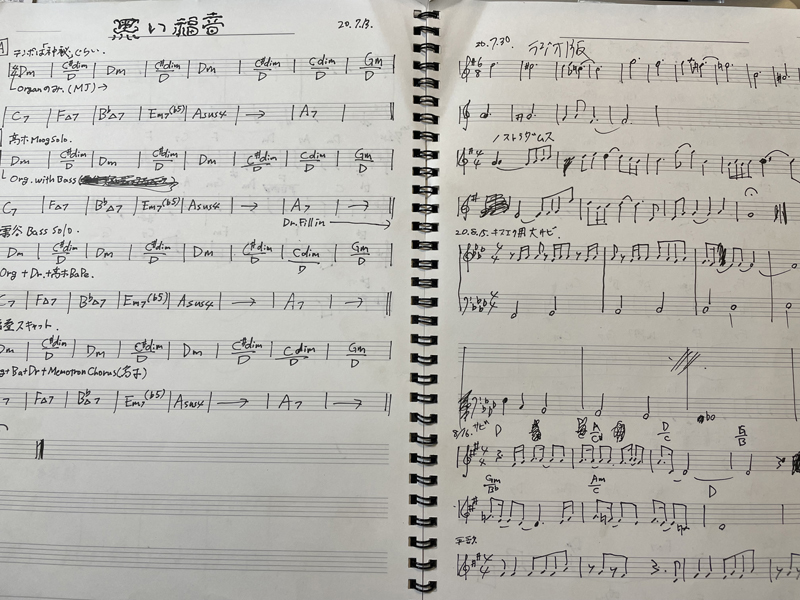 黒い福音
20.7.13.
A
テンポは「神秘」ぐらい.
Dm C#dim/D Dm C#dim/D Dm C#dim/D Cdim/D Gm/D
Organのみ.(MJ)→
C7 F△7 Bb△7 Em7(b5) Asus4 → A7
高木 Moog Solo.
Dm C#dim/D Dm C#dim/D Dm C#dim/D Cdim/D Gm/D
Org. with Bass
C7 F△7 Bb△7 Em7(b5) Asus4 → A7 →
Dr. Fill in →
Bass Solo.
Dm C#dim/D Dm C#dim/D Dm C#dim/D Cdim/D Gm/D
Org + Dr. + 高木
C7 F△7 Bb△7 Em7(b5) Asus4 → A7 →
スキャット.
Dm C#dim/D Dm C#dim/D Dm C#dim/D Cdim/D Gm/D
+Ba+Dr+Memotron Chorus
F△7 Bb△7 Em7(b5) Asus4 → A7 →
20.7.30 ラジオ版
6/8
ノストラダムス
4/4
20.8.15.
4/4
8/16. サビ D A/C# D/C E/B
4/4
Gm/Bb Am/C D
4/4